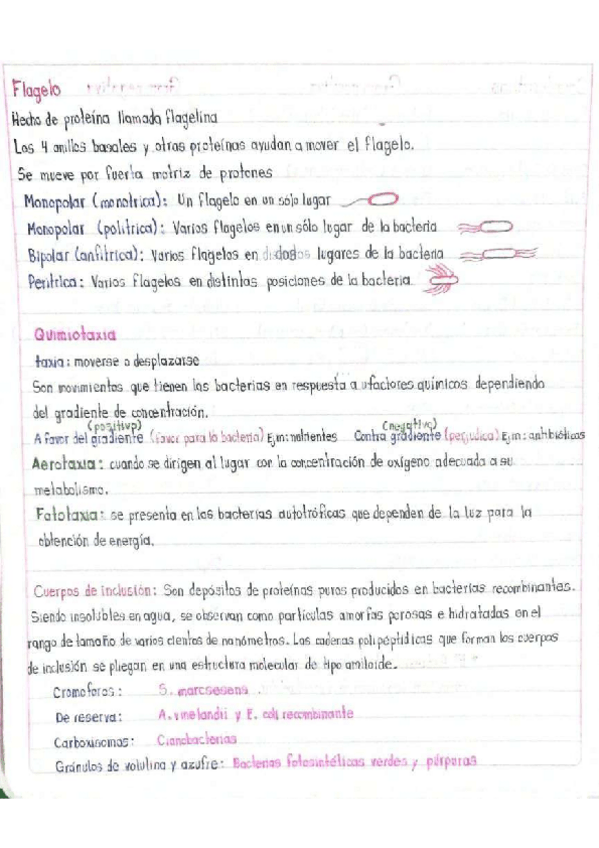 Flagelo
Hecho de proteína llamada flagelina
Los 4 anillos basales y otras proteínas ayudan a mover el flagelo.
Se mueve por fuerza motriz de protones
Monopolar (monotrica): Un flagelo en un sólo lugar
Monopolar (politrica): Varios flagelos en un sólo lugar de la bacteria
Bipolar (anfitrica): Varios flagelos en dos lugares de la bacteria
Peritrica: Varios flagelos en distintas posiciones de la bacteria.
Quimiotaxia
taxia: moverse o desplazarse
Son movimientos que tienen las bacterias en respuesta a factores químicos dependiendo
del gradiente de concentración.
(positivo) (negativo)
A favor del gradiente (favor para la bacteria) Ejm: nutrientes Contra gradiente (perjudica) Ejm: antibióticos
Aerotaxia: cuando se dirigen al lugar con la concentración de oxígeno adecuada a su
metabolismo.
Fototaxia: se presenta en las bacterias autotróficas que dependen de la luz para la
obtención de energía.
Cuerpos de inclusión: Son depósitos de proteínas puros producidos en bacterias recombinantes.
Siendo insolubles en agua, se observan como partículas amorfas porosas e hidratadas en el
rango de tamaño de varios cientos de nanómetros. Las cadenas polipeptídicas que forman los cuerpos
de inclusión se pliegan en una estructura molecular de tipo amiloide.
Cromoforos: S. marcsesens
De reserva: A. vinelandii y E. coli recombinante
Carboxisomas: Cianobacterias
Gránulos de volutina y azufre: Bacterias fotosintéticas verdes y púrpuras